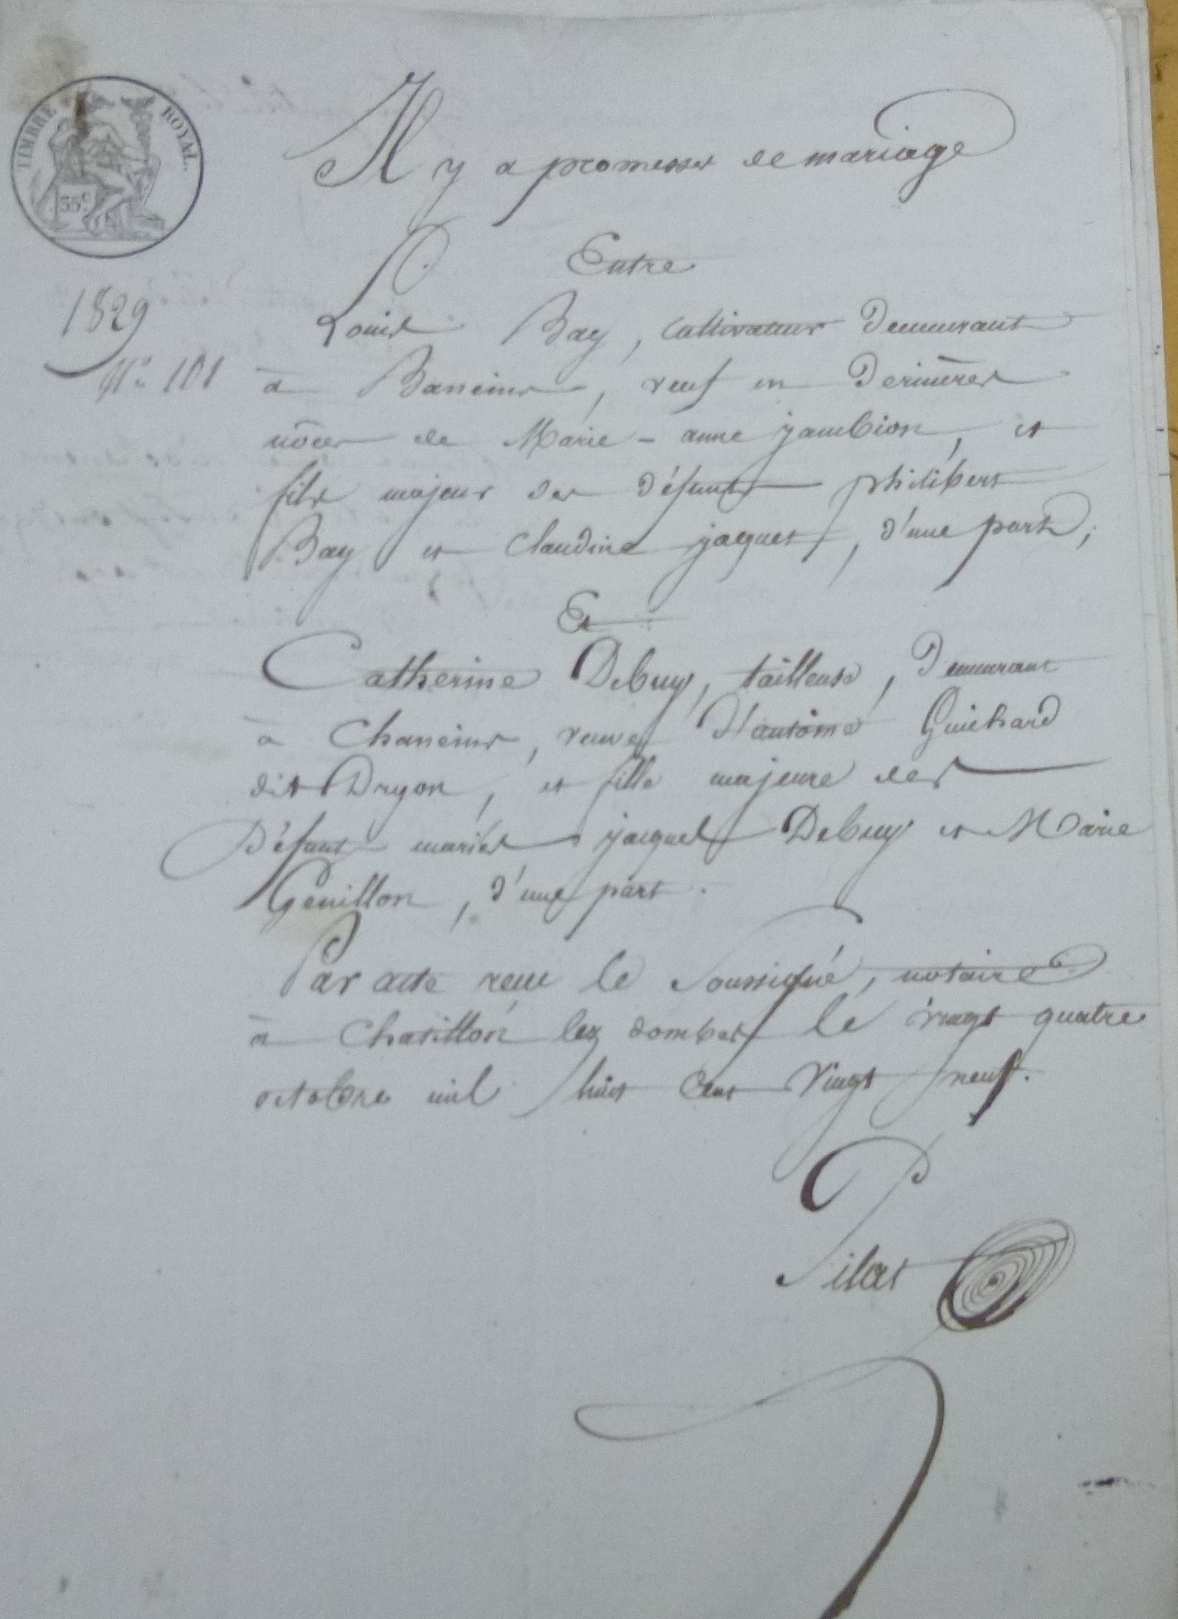 TIMBRE ROYAL.
35 c.
Il y a promesses de mariage
Entre
1829
Louis Bay, cultivateur demeurant
N.° 101
à Baneins, veuf en dernières
nôces de Marie-anne jambion, et
fils majeur des défunts philibert
Bay et Claudine jaquet, d'une part;
Et
Catherine Debuy, tailleuse, demeurant
à Chaneins, veuve d'antoine Guichard
dit Dryon, et fille majeure des
défunt mariés jacques Debuy et Marie
Genillon, d'une part.
Par acte reçu le soussigné, notaire
à Chatillon les dombes le vingt quatre
octobre mil huit cent vingt neuf.
Pilat